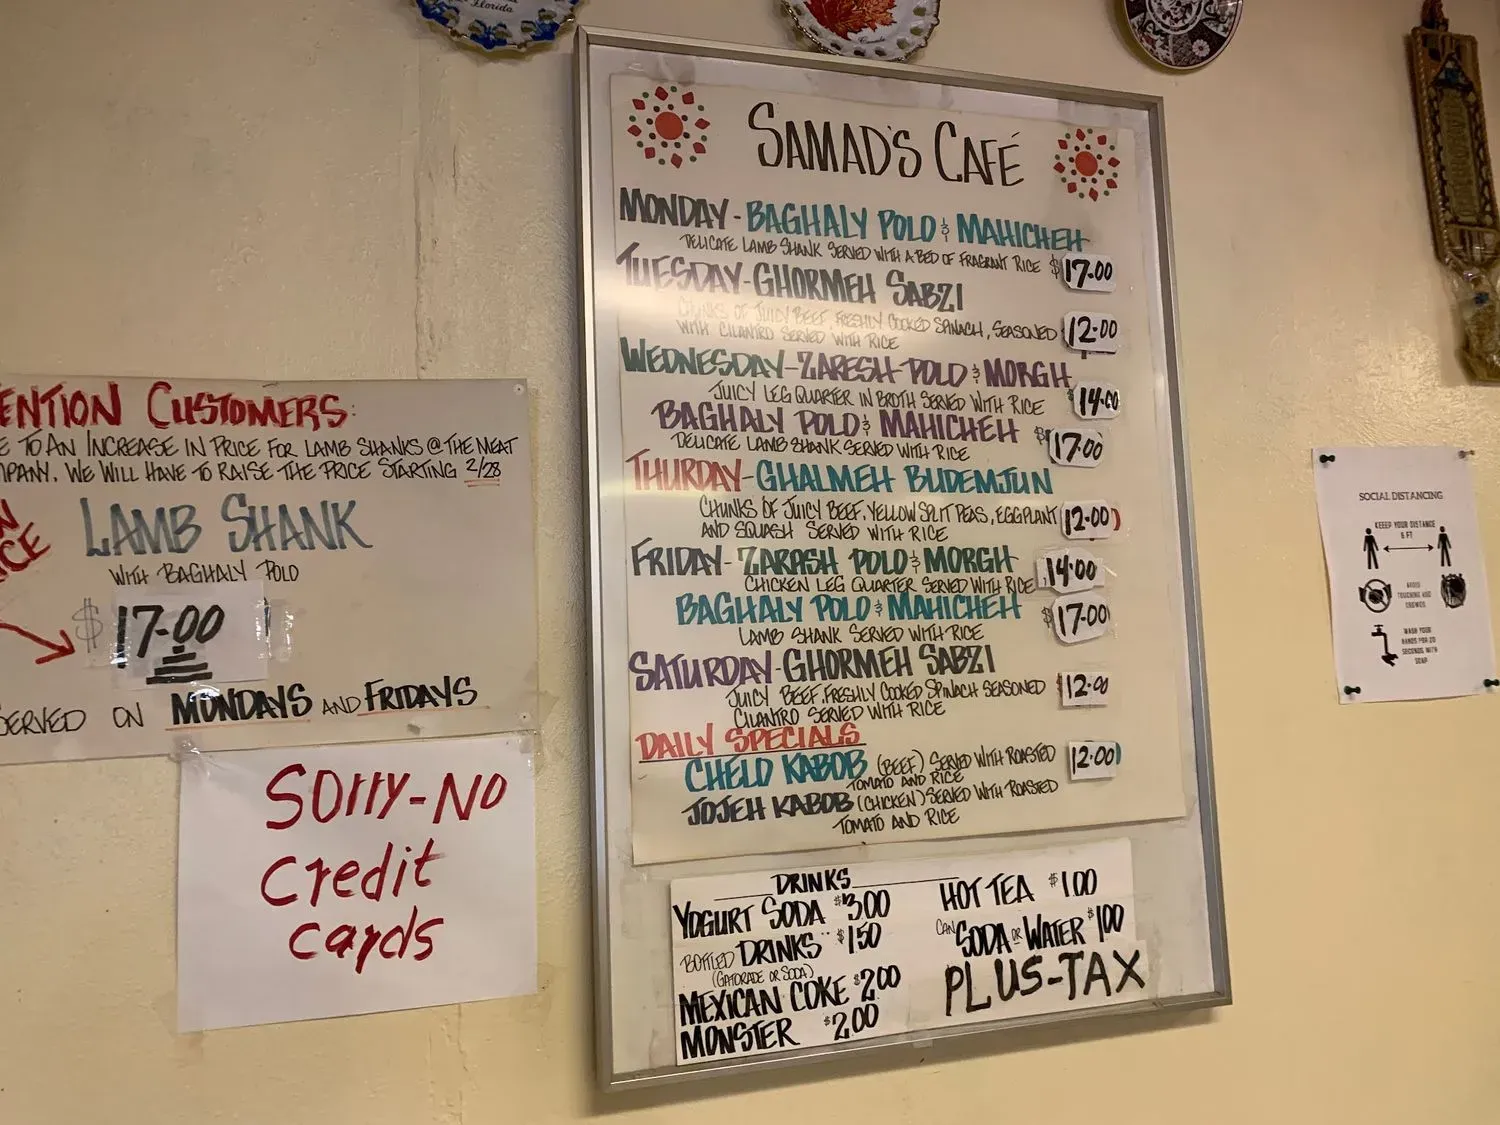 Florida
Canada
SAMAD'S CAFÉ
MONDAY - BAGHALY POLO & MAHICHEH
DELICATE LAMB SHANK SERVED WITH A BED OF FRAGRANT RICE $17.00
TUESDAY - GHORMEH SABZI
CHUNKS OF JUICY BEEF, FRESHLY COOKED SPINACH, SEASONED
WITH CILANTRO SERVED WITH RICE 12.00
WEDNESDAY - ZARESH POLO & MORGH
JUICY LEG QUARTER IN BROTH SERVED WITH RICE 14.00
BAGHALY POLO & MAHICHEH
DELICATE LAMB SHANK SERVED WITH RICE $17.00
THURDAY - GHALMEH BUDEMJUN
CHUNKS OF JUICY BEEF, YELLOW SPLIT PEAS, EGGPLANT
AND SQUASH SERVED WITH RICE 12.00
FRIDAY - ZARASH POLO & MORGH
CHICKEN LEG QUARTER SERVED WITH RICE 14.00
BAGHALY POLO & MAHICHEH
LAMB SHANK SERVED WITH RICE $17.00
SATURDAY - GHORMEH SABZI
JUICY BEEF, FRESHLY COOKED SPINACH SEASONED
CILANTRO SERVED WITH RICE 12.00
DAILY SPECIALS
CHELO KABOB (BEEF) SERVED WITH ROASTED
TOMATO AND RICE 12.00
JOJEH KABOB (CHICKEN) SERVED WITH ROASTED
TOMATO AND RICE
DRINKS
YOGURT SODA $3.00
BOTTLED DRINKS $1.50
(GATORADE OR SODA)
MEXICAN COKE $2.00
MONSTER $2.00
HOT TEA $1.00
CAN SODA OR WATER $1.00
PLUS-TAX
ENTION CUSTOMERS:
E TO AN INCREASE IN PRICE FOR LAMB SHANKS @ THE MEAT
MPANY. WE WILL HAVE TO RAISE THE PRICE STARTING 2/28
LAMB SHANK
WITH BAGHALY POLO
$17.00
SERVED ON MONDAYS AND FRIDAYS
Sorry-No
credit
cards
SOCIAL DISTANCING
KEEEP YOUR DISTANCE
6 FT
AVOID
TOUCHING AND
CROWDS
WASH YOUR
HANDS FOR 20
SECONDS WITH
SOAP